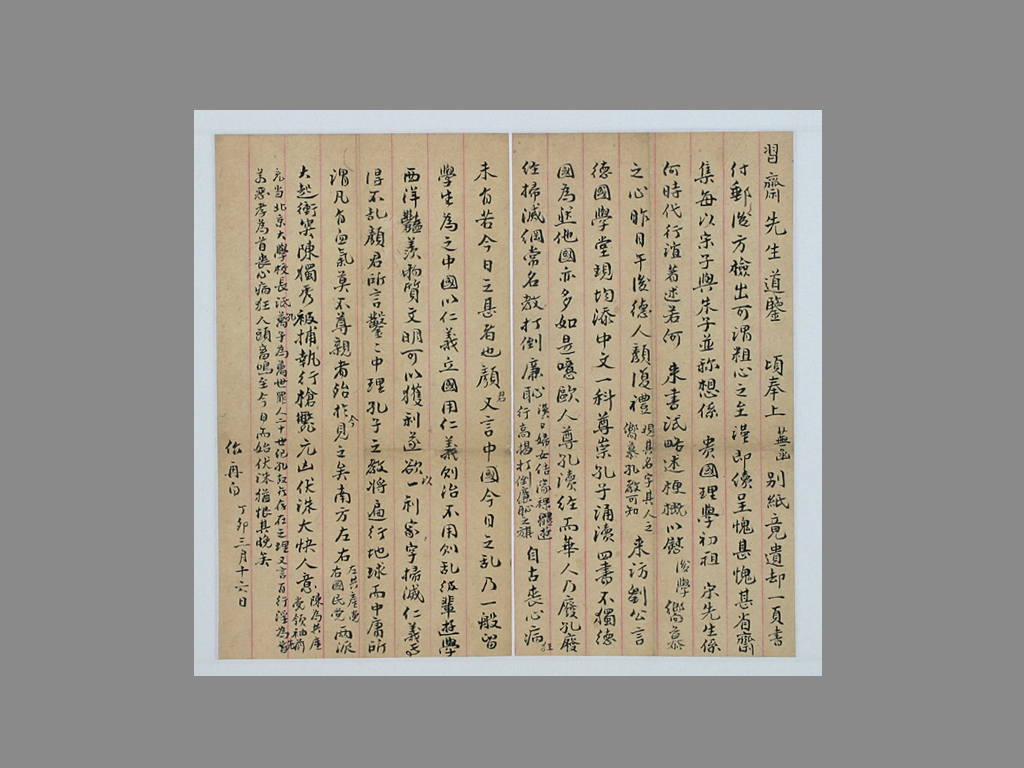 習齋先生道鑒 頃奉上蕪函別紙竟遺却一頁書
付郵後方檢出可謂粗心之至謹即續呈愧甚愧甚省齋
集每以宋子與朱子並稱想係 貴國理學初祖 宋先生係
何時代行誼著述若何 來書泝略述梗概以慰後學嚮慕
之心昨日午後德人顏復禮觀其名字其人之嚮慕孔教可知來訪劉公言
德國學堂現均添中文一科尊崇孔子誦讀四書不獨德
國為然他國亦多如是噫歐人尊孔讀經而華人乃廢孔廢
經掃滅綱常名教打倒廉恥漢口婦女結隊裸體遊行高揭打倒廉恥之旗自古喪心病狂
未有若今日之甚者也顏君又言中國今日之乱乃一般留
學生為之中國以仁義立國用仁義則治不用則乱彼輩遊學
西洋豔羨物質文明可以獲利遂欲以一利字掃滅仁義烏
得不乱顏君所言鑿鑿中理孔子之教將遍行地球而中庸所
謂凡有血氣莫不尊親者殆於今見之矣南方左右左共產黨右國民黨兩派
大起衝突陳獨秀被捕執行槍斃元凶伏誅大快人意陳為共產黨領袖前
充當北京大學校長詆孔子為萬世罪人二十世紀孔教存在之理又言百行淫為先
萬惡孝為首喪心病狂人頭畜鳴至今日而始伏誅猶恨其晚矣
佐再白 丁卯三月十六日